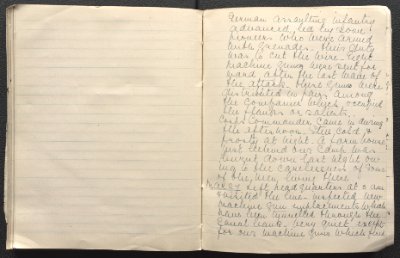 German assaulting infantry
advanced, led by some
pioneers who were armed
with grenades. Their duty
was to cut the wire. Light
machine guns were sent for
ward after the last wave of
the attack. These guns were
distributed in pairs among
the Companies which occupied
the flanks or salients.
Corps Commander came in during
the afternoon. Still cold &
frosty at night. A farm house
just behind our Camp was
burnt down last night ow
ing to the carelessness of some
of the men living there
Left headquarters at 6 am
& visited the line inspected new
machine gun emplacements which
have been tunnelled through the
Canal bank. Very quiet except
for our machine guns which fired